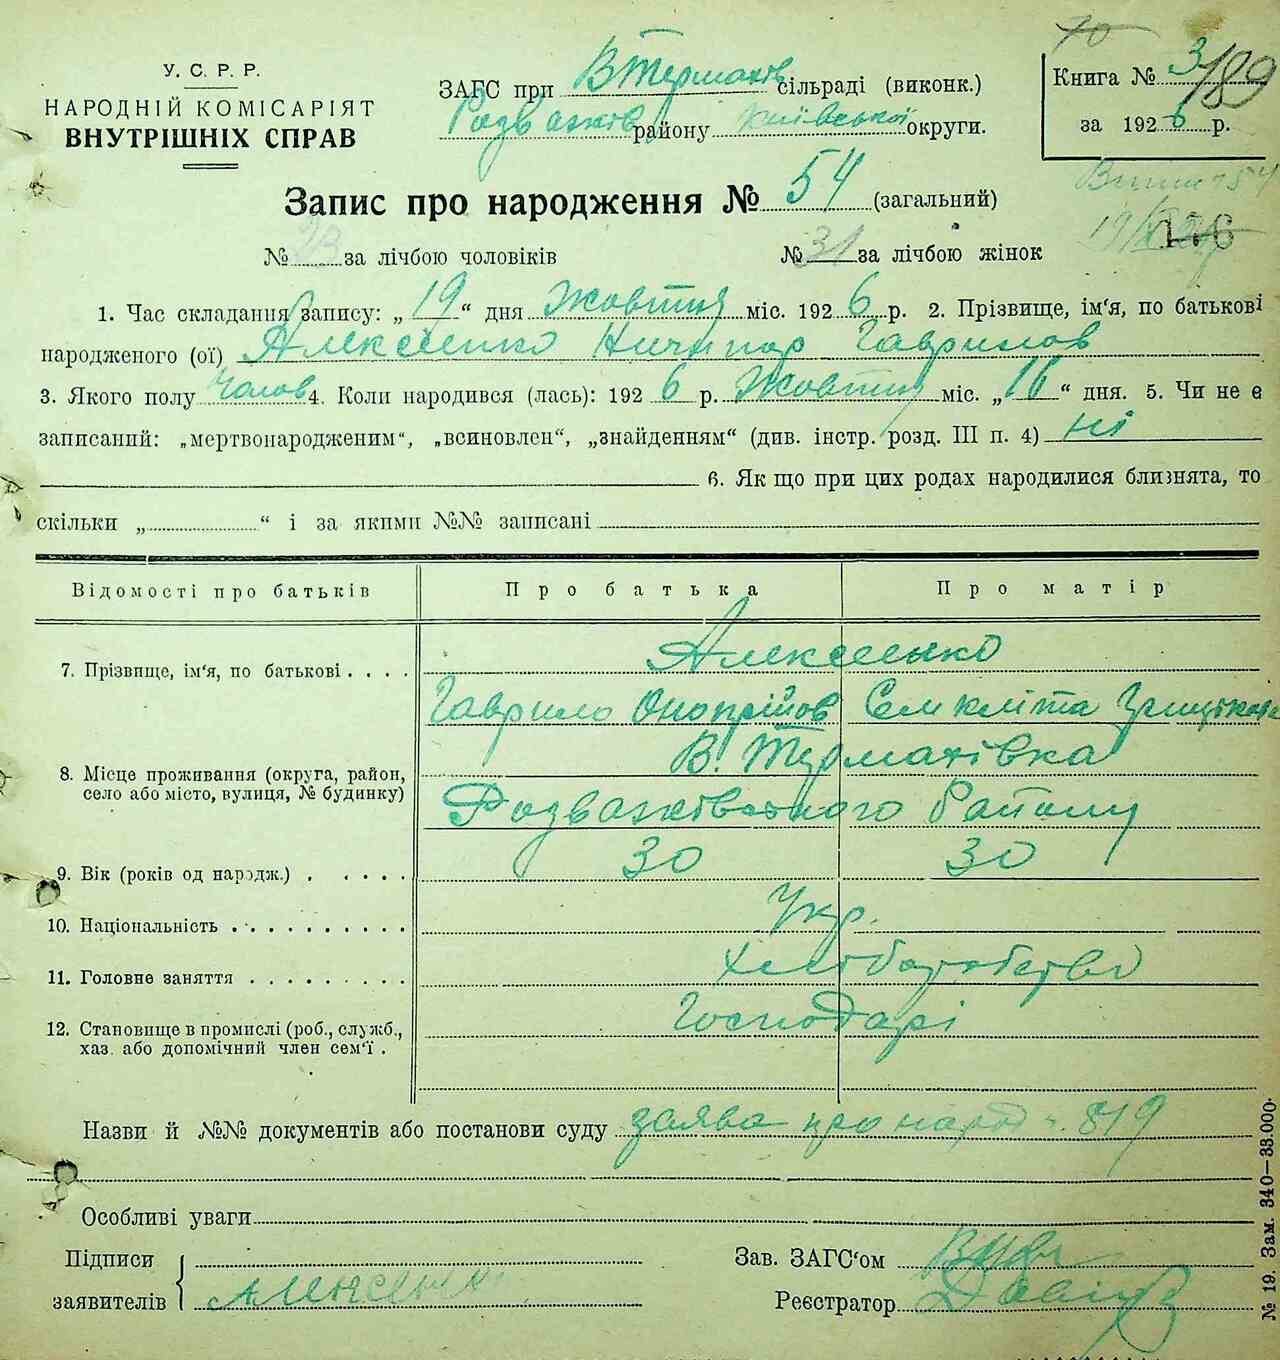 У. С. Р. Р.
НАРОДНІЙ КОМІСАРІЯТ
ВНУТРІШНІХ СПРАВ
ЗАГС при В Термахів сільраді (виконк.)
Розважів району Київської округи.
70
Книга № 3/89
за 1926 р.
Запис про народження № 54 (загальний)
№ 23 за лічбою чоловіків № 31 за лічбою жінок
176
1. Час складання запису: „19“ дня Жовтня міс. 1926 р. 2. Прізвище, ім‘я, по батькові
народженого (ої) Алексеенко Ничипор Гаврилов
3. Якого полу Чолов 4. Коли народився (лась): 1926 р. Жовтня міс. „16“ дня. 5. Чи не є
записаний: „мертвонародженим“, „всиновлен“, „знайденням“ (див. інстр. розд. III п. 4) ні
6. Як що при цих родах народилися близнята, то
скільки „ “ і за якими №№ записані
Відомості про батьків Про батька Про матір
7. Прізвище, ім‘я, по батькові . . . . Алексеенко
Гаврило Онопрійов Семкліта
8. Місце проживання (округа, район,
село або місто, вулиця, № будинку)
В. Термахівка
Розважівського Району
9. Вік (років од народж.) . . . . . 30 30
10. Національність . . . . . . . . . . Укр.
11. Головне заняття . . . . . . . . . Хліборобство
12. Становище в промислі (роб., служб.,
хаз. або допомічний член сем‘ї .
Господарі
Назви й №№ документів або постанови суду заява про народ ч. 819
Особливі уваги
Підписи
заявителів
Зав. ЗАГС‘ом
Реєстратор
№ 19. Зам. 340—33.000.